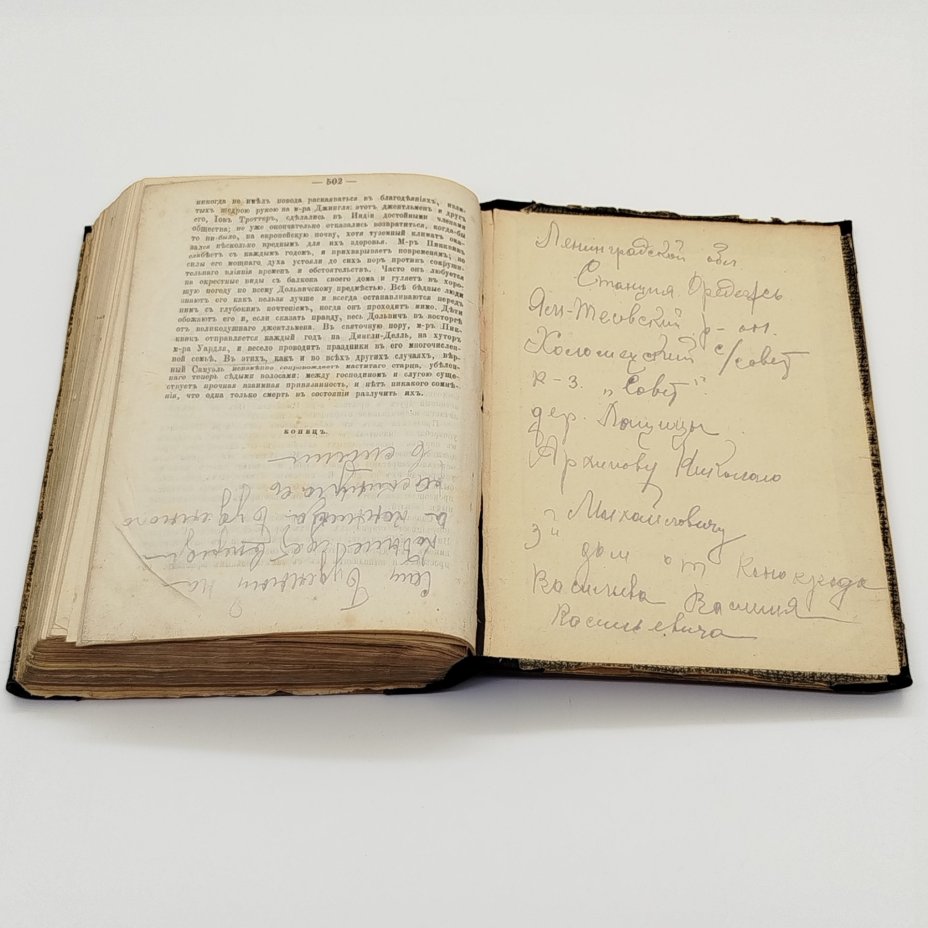 — 502 —
никогда не имѣлъ повода раскаяваться въ благодѣяніяхъ, изли-
тыхъ щедрою рукою на м-ра Джингля: этотъ джентльменъ и другъ
его, Іовъ Троттеръ, сдѣлались въ Индіи достойными членами
общества; но уже окончательно отказались возвратиться, когда-бы
то ни-было, на европейскую почву, хотя туземный климатъ ока-
зался нѣсколько вреднымъ для ихъ здоровья. М-ръ Пикквикъ
слабѣетъ съ каждымъ годомъ, и прихварываетъ повременамъ; но
силы его мощнаго духа устояли до сихъ поръ противъ сокруши-
тельнаго вліянія временъ и обстоятельствъ. Часто онъ любуется
на окрестные виды съ балкона своего дома и гуляетъ въ хоро-
шую погоду по всему Дольвичскому предмѣстью. Всѣ бѣдные люди
знаютъ его какъ нельзя лучше и всегда останавливаются передъ
нимъ съ глубокимъ почтеніемъ, когда онъ проходитъ мимо. Дѣти
обожаютъ его и, если сказать правду, весь Дольвичъ въ восторгѣ
отъ великодушнаго джентльмена. Въ святочную пору, м-ръ Пик-
квикъ отправляется каждый годъ на Дингли-Делль, на хуторъ
м-ра Уардля, и весело проводитъ праздники въ его многочислен-
ной семьѣ. Въ этихъ, какъ и во всѣхъ другихъ случаяхъ, вѣр-
ный Самуэль неизмѣнно сопровождаетъ маститаго старца, убѣлен-
наго теперь сѣдыми волосами: между господиномъ и слугою суще-
ствуетъ прочная взаимная привязанность, и нѣтъ никакого сомнѣ-
нія, что одна только смерть въ состояніи разлучить ихъ.
КОНЕЦЪ.
Сам Буденный на
идет вперед
а конница Буденного
в степи
Ленинградской обл
Станция Оредежь
р-он.
с/совет
к-з. „Совет".
дер.
Архипову Николаю
Михайловичу
3й дом от
Васильева Василия
Васильевича